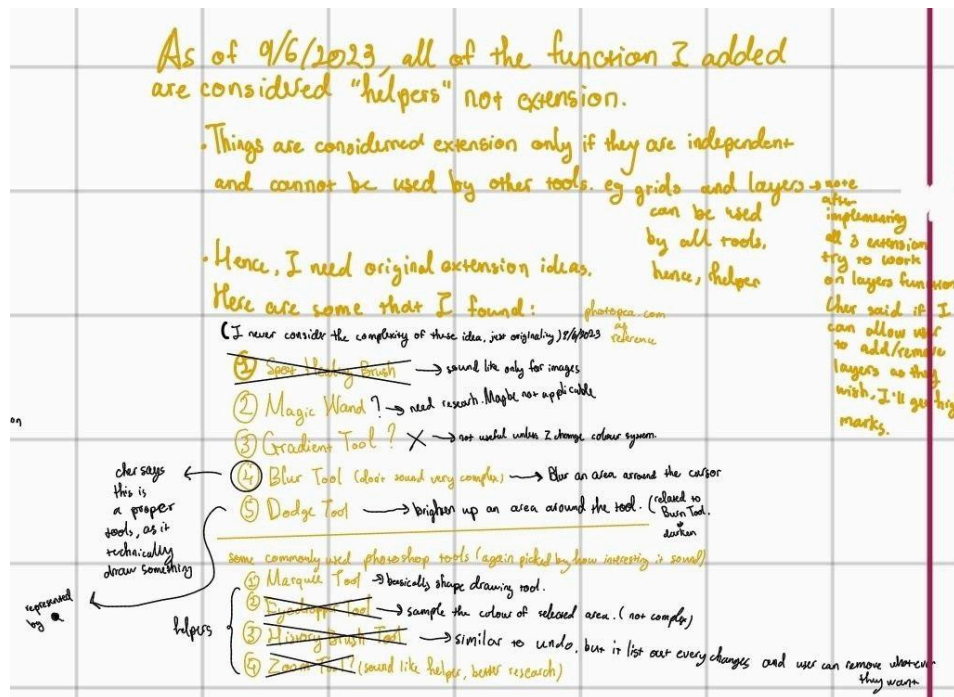 As of 9/6/2023, all of the function I added
are considered "helpers" not extension.
• Things are considerned extension only if they are independent
and cannot be used by other tools. eg grids and layers → note
can be used
by all tools,
hence, helper
after
implementing
all 3 extension
try to work
on layers function
Cher said if I
can allow user
to add/remove
layers as they
wish, I'll get hig
marks.
• Hence, I need original extension ideas.
Here are some that I found:
photopea.com
as
reference
(I never consider the complexity of these idea, just originality) 9/6/2023
① Spot Healing Brush → sound like only for images
② Magic Wand? → need research. Maybe not applicable
③ Gradient Tool? X → not useful unless I change colour system.
④ Blur Tool (don't sound very complex) → Blur an area around the cursor
⑤ Dodge Tool → brighten up an area around the tool. (related to
Burn Tool.
darken
on
cher says
this is
a proper
tools, as it
technically
draw something
represented
by
some commonly used photoshop tools (again picked by how interesting it sound)
① Marquee Tool → basically shape drawing tool.
helpers
② Eyedropper Tool → sample the colour of selected area. (not complex)
③ History Brush Tool → similar to undo, but it list out every changes and user can remove whatever
they want
④ Zoom Tool? (sound like helper, better research)